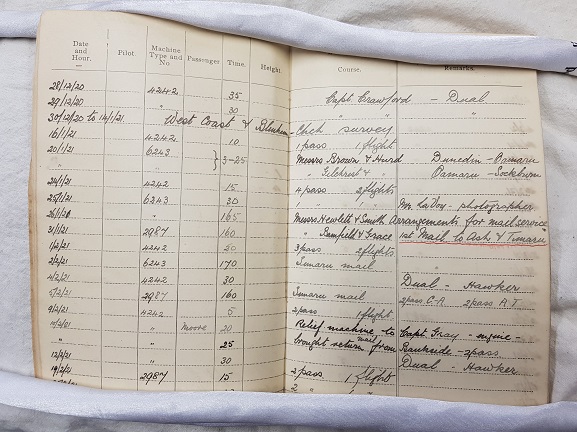 Date and Hour. Pilot. Machine Type and No Passenger Time. Height. Course. Remarks.
28/12/20 4242 35 Capt Crawford - Dual
29/12/20 " 30 " "
30/12/20 to 14/1/21 West Coast & Blenheim - Chch survey
16/1/21 4242 10 1 pass 1 flight
20/1/21 6243 } 3-25 Messrs Brown & Hurd Dunedin - Oamaru
" " Gilchrist & " Oamaru - Sockburn
24/1/21 4242 15 4 pass 2 flights
25/1/21 6243 30 " " " Mr LaVoy - photographer
26/1/21 " 165 Messrs Hewlett & Smith Arrangements for mail service
31/1/21 2987 160 " Bamfield & Grace 1st Mail to Ash & Timaru
1/2/21 4242 30 3 pass 2 flights
2/2/21 6243 170 Timaru mail "
4/2/21 4242 30 Dual - Hawker
5/2/21 2987 160 Timaru mail 2 pass. C.A 2 pass A.T.
9/2/21 4242 5 2 pass 1 flight
11/2/21 " Moore 20 Relief machine to Capt Gray - engine -
" " 25 brought return mail from Bankside - 2 pass
12/2/21 " 30 Dual - Hawker
19/2/21 2987 15 2 pass 1 flight